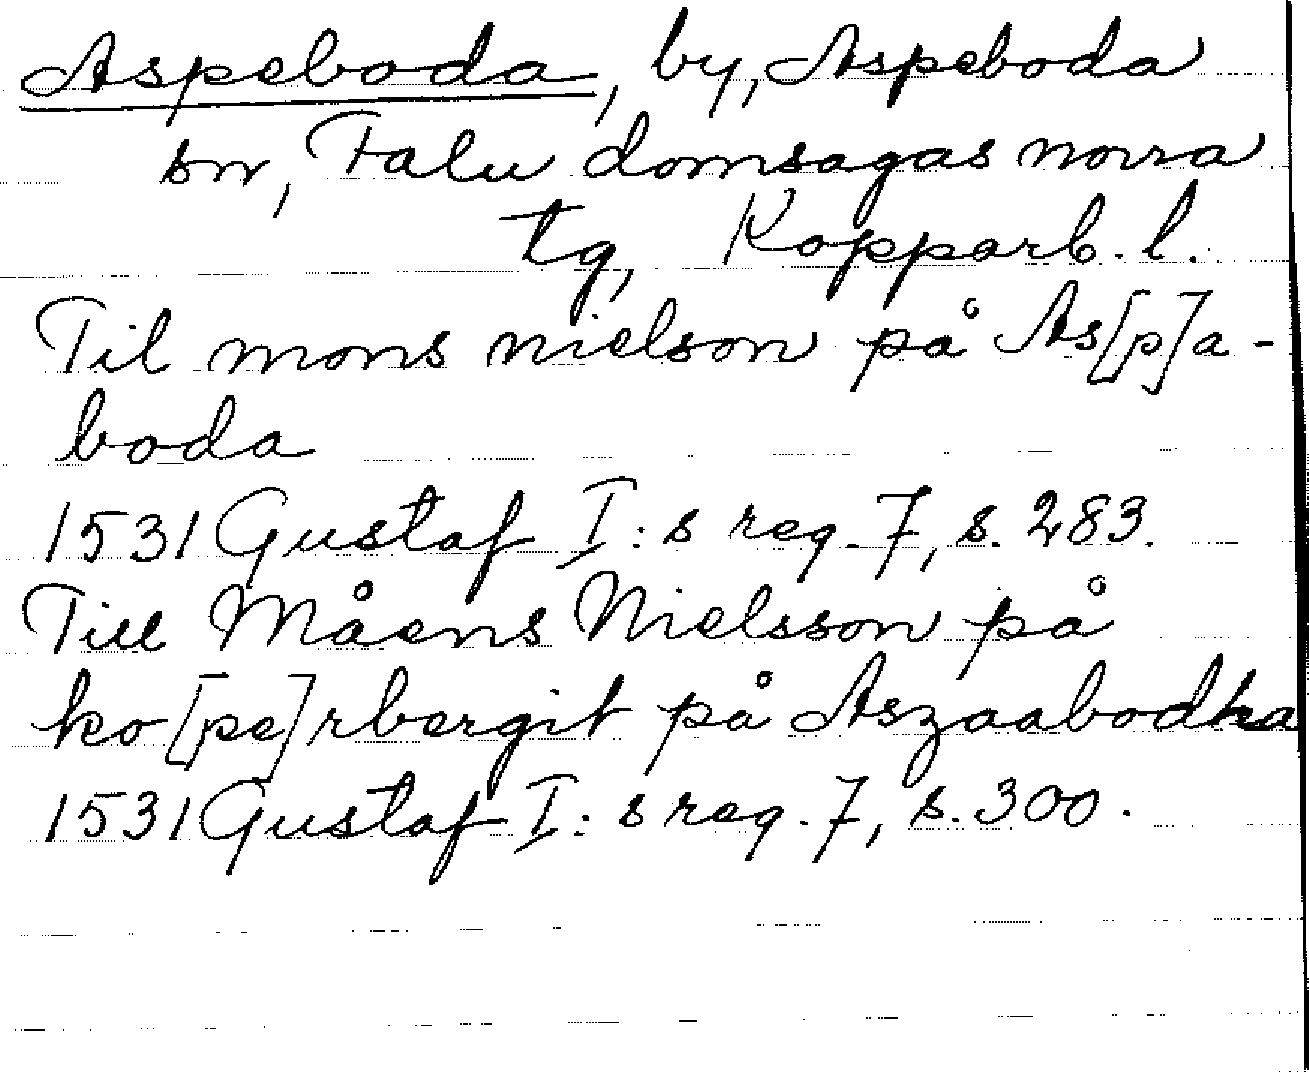 Aspeboda, by, Aspeboda
sn, Falu domsagas norra
tg, Kopparb. l.
Til mons nielson på As[p]a-
boda
1531 Gustaf I:s reg. 7, s. 283.
Till Måens Nielsson på
ko[pe]rbergit på Aszaabodha
1531 Gustaf I:s reg. 7, s. 300.